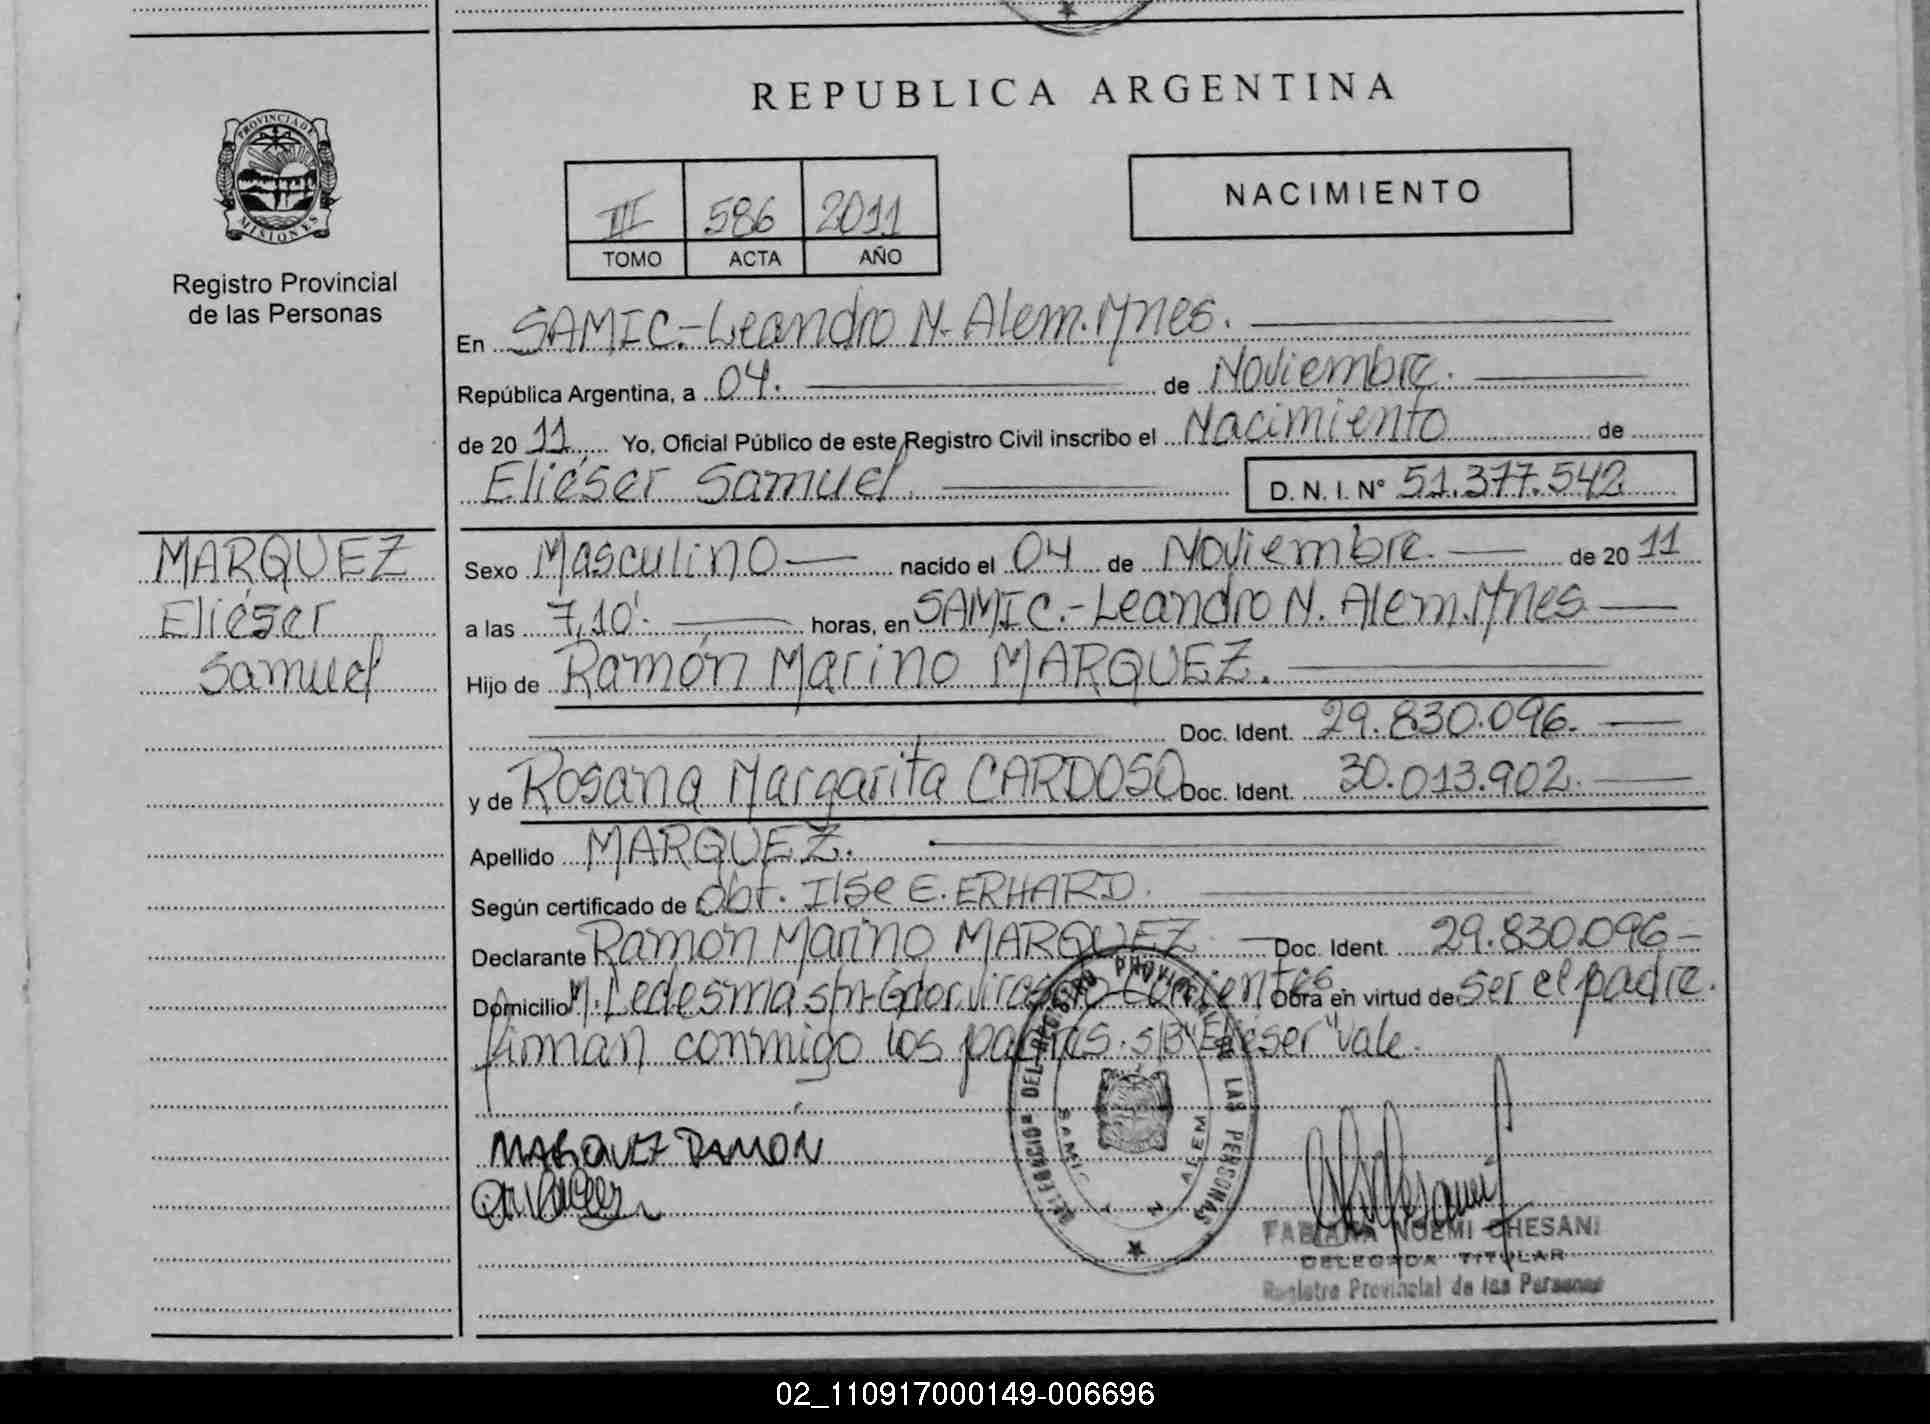 REPUBLICA ARGENTINA
PROVINCIA DE
MISIONES
Registro Provincial
de las Personas
III 586 2011
TOMO ACTA AÑO
NACIMIENTO
En SAMIC.-Leandro N. Alem. Mnes.
República Argentina, a 04. de Noviembre.
de 2011 Yo, Oficial Público de este Registro Civil inscribo el Nacimiento de
Eliéser Samuel D. N. I. N° 51.377.542
MARQUEZ
Eliéser
Samuel
Sexo Masculino nacido el 04 de Noviembre. de 2011
a las 7,10'. horas, en SAMIC.-Leandro N. Alem. Mnes
Hijo de Ramón Marino MARQUEZ.
Doc. Ident. 29.830.096.
y de Rosana Margarita CARDOSO Doc. Ident. 30.013.902.
Apellido MARQUEZ.
Según certificado de Obt. Ilse E. ERHARD.
Declarante Ramón Marino MARQUEZ Doc. Ident. 29.830.096-
Domicilio M. Ledesma s/n-Gdor. Virasoro-Corrientes. Obra en virtud de ser el padre.
firman conmigo los padres. s/B "Eliéser" Vale.
DELEGACION DEL REGISTRO PROVINCIAL DE LAS PERSONAS
SAMIC
N ALEM
MARQUEZ RAMON
FABIANA NOEMI CHESANI
DELEGADA TITULAR
Registro Provincial de las Personas
02_110917000149-006696